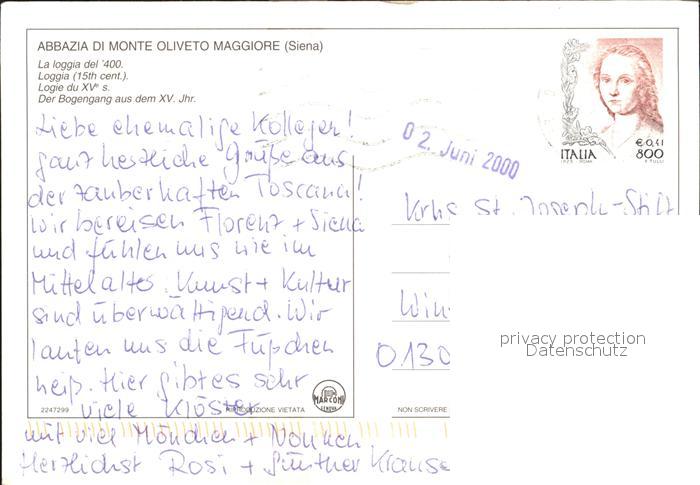 ABBAZIA DI MONTE OLIVETO MAGGIORE (Siena)
La loggia del '400.
Loggia (15th cent.).
Logie du XVᵉ s.
Der Bogengang aus dem XV. Jhr.
Liebe ehemalige Kollegen!
ganz herzliche Grüße aus
der zauberhaften Toscana!
Wir bereisen Florenz + Siena
und fühlen uns wie im
Mittelalter. Kunst + Kultur
sind überwältigend. Wir
laufen uns die Füßchen
heiß. Hier gibt es sehr
viele Klöster
mit viel Mönchen + Nonnen
Herzlichst Rosi + Günther Krause
2247299
RIPRODUZIONE VIETATA
MARCONI
GENOVA
NON SCRIVERE
02. Juni 2000
€ 0,41
ITALIA 800
Krhs St. Joseph-Stift
Win
0130
privacy protection
Datenschutz